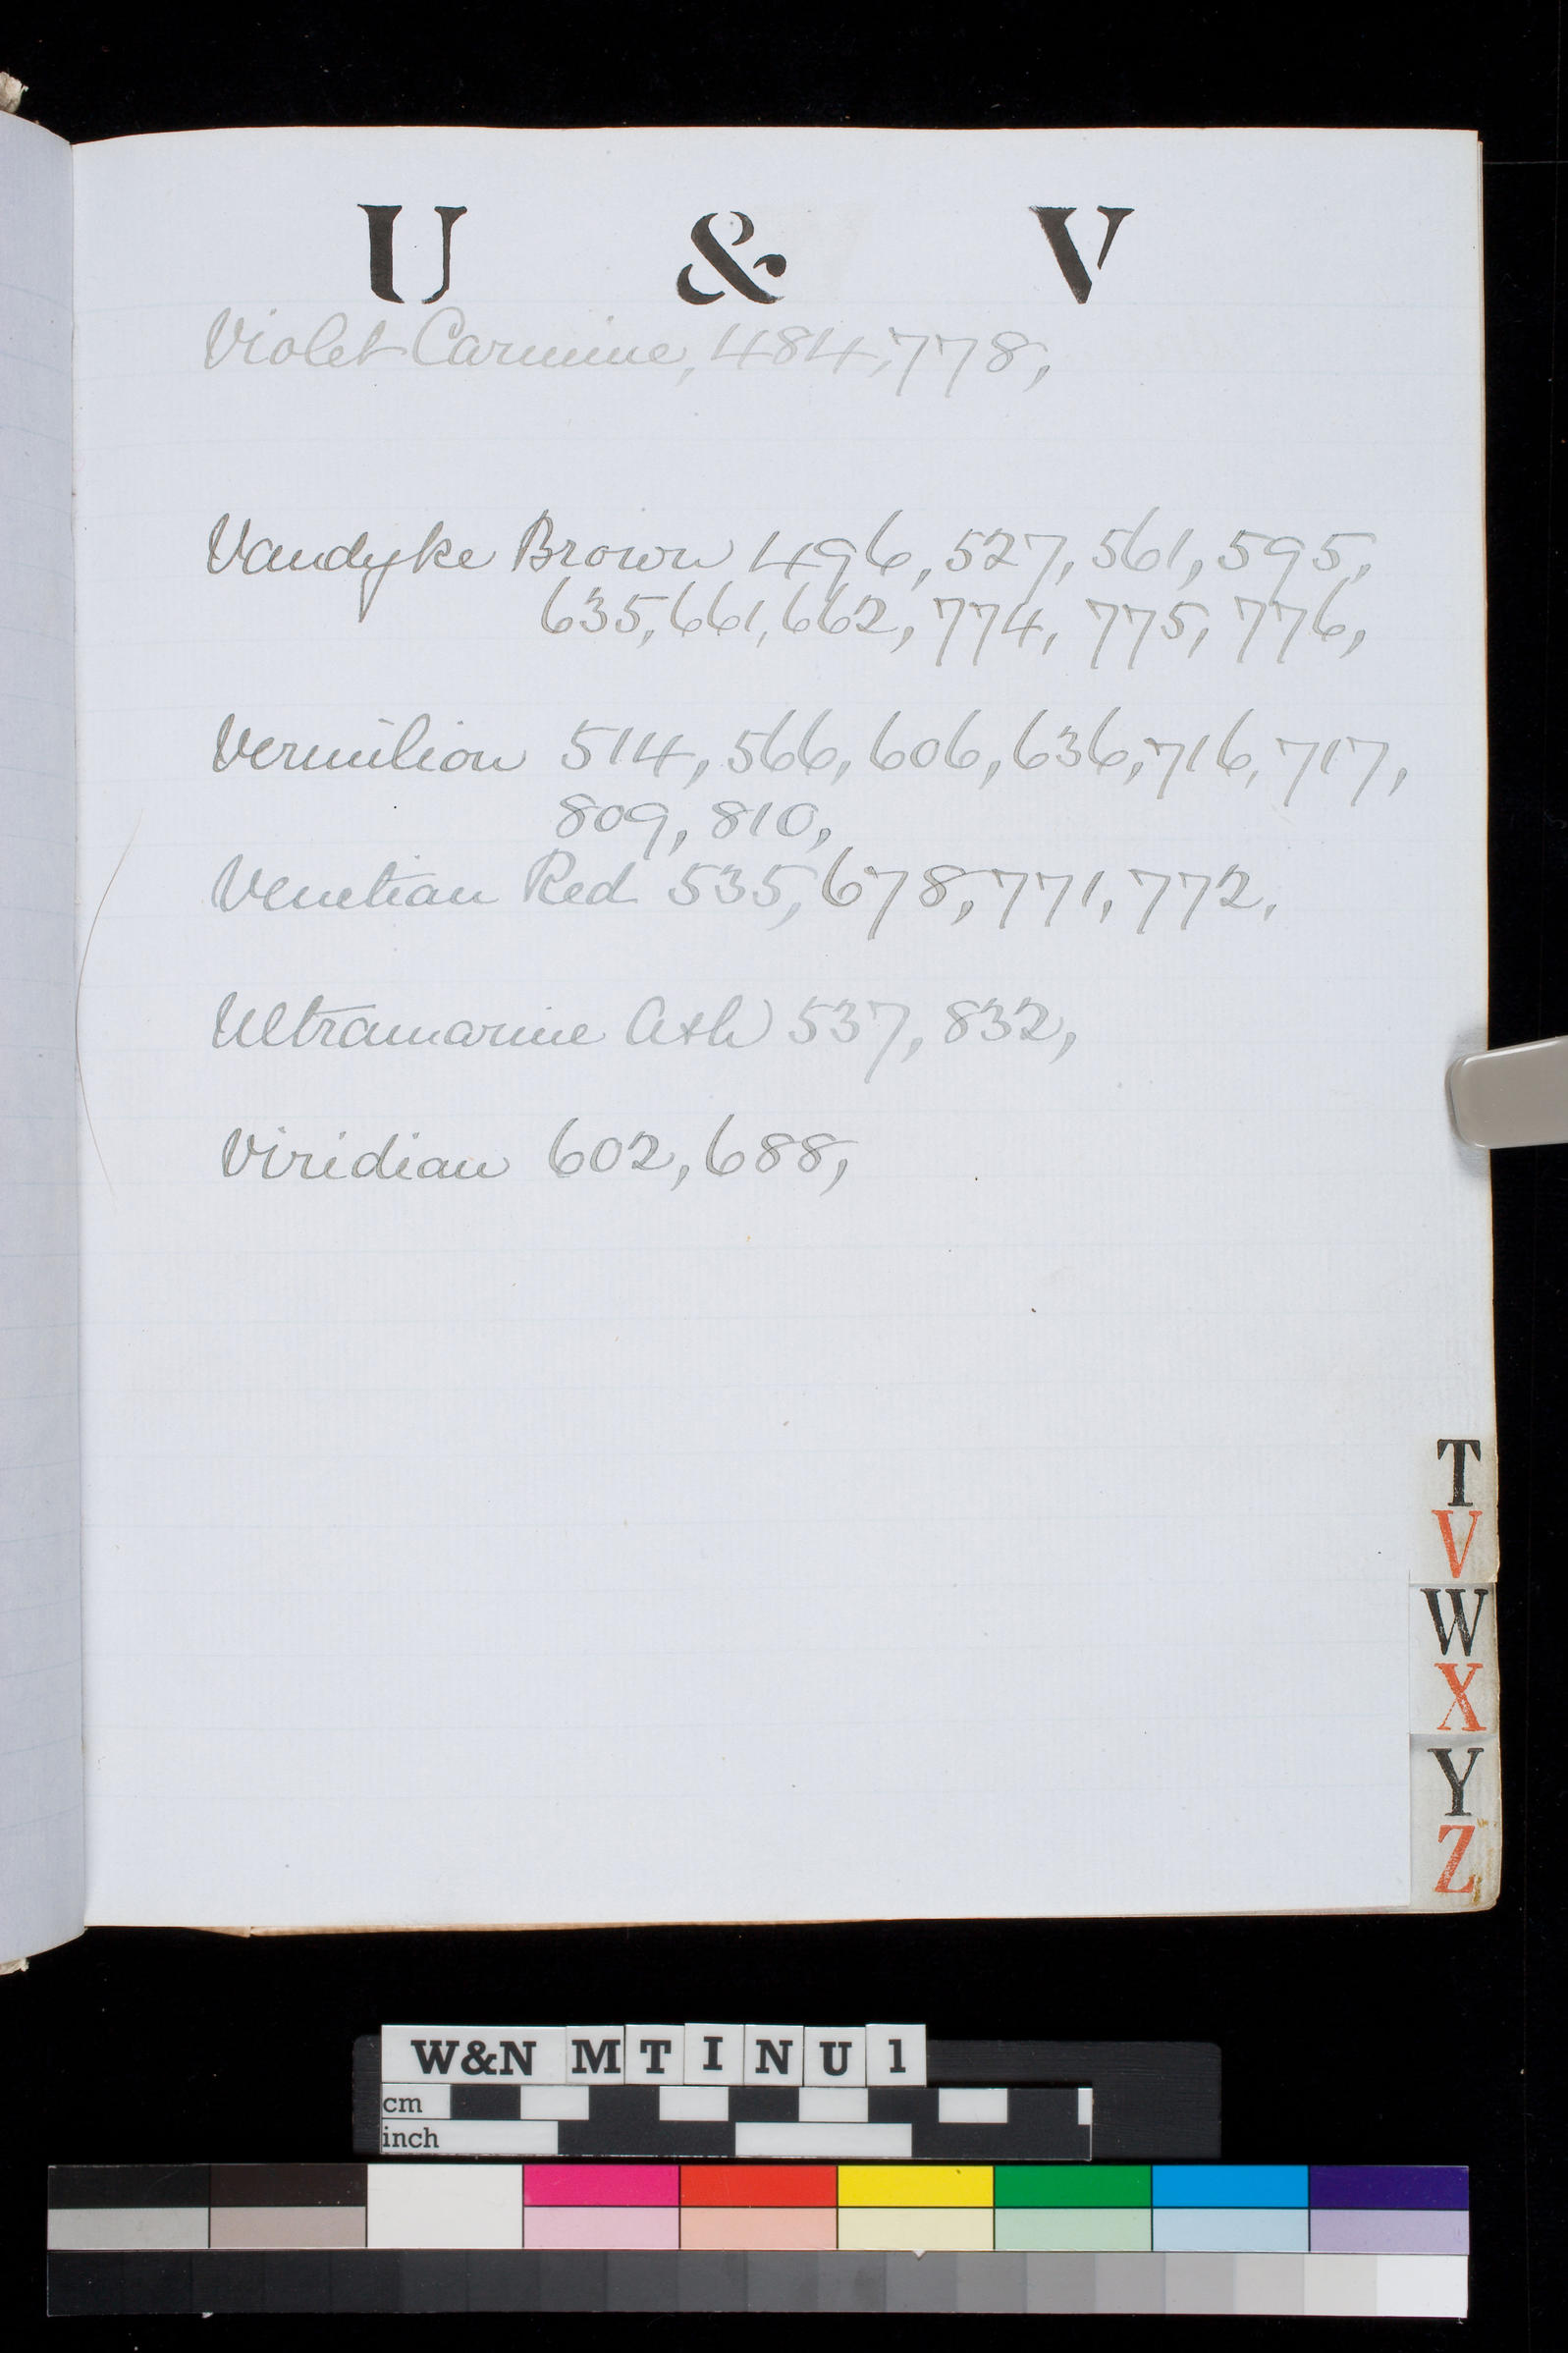 U & V
Violet Carmine, 484, 778,
Vandyke Brown 496, 527, 561, 595,
635, 661, 662, 774, 775, 776,
Vermilion 514, 566, 606, 636, 716, 717,
809, 810,
Venetian Red 535, 678, 771, 772,
Ultramarine Ash 537, 832,
Viridian 602, 688,
T
V
W
X
Y
Z
W&N MTINU1
cm
inch